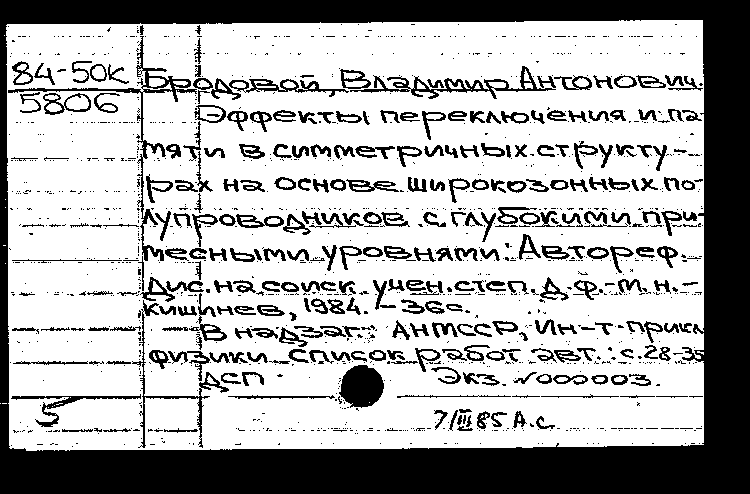 84-50к Бродовой, Владимир Антонович.
5806 Эффекты переключения и па-
мяти в симметричных структу-
рах на основе широкозонных по-
лупроводников с глубокими при-
месными уровнями: Автореф.
дис. на соиск. учен. степ. д. ф.-м. н. -
Кишинев, 1984. - 36 с.
В надзаг.: АН МССР, Ин-т прикл.
физики Список работ авт.: с. 28-35
ДСП Экз. №000003.
5
7/III 85 А.с.